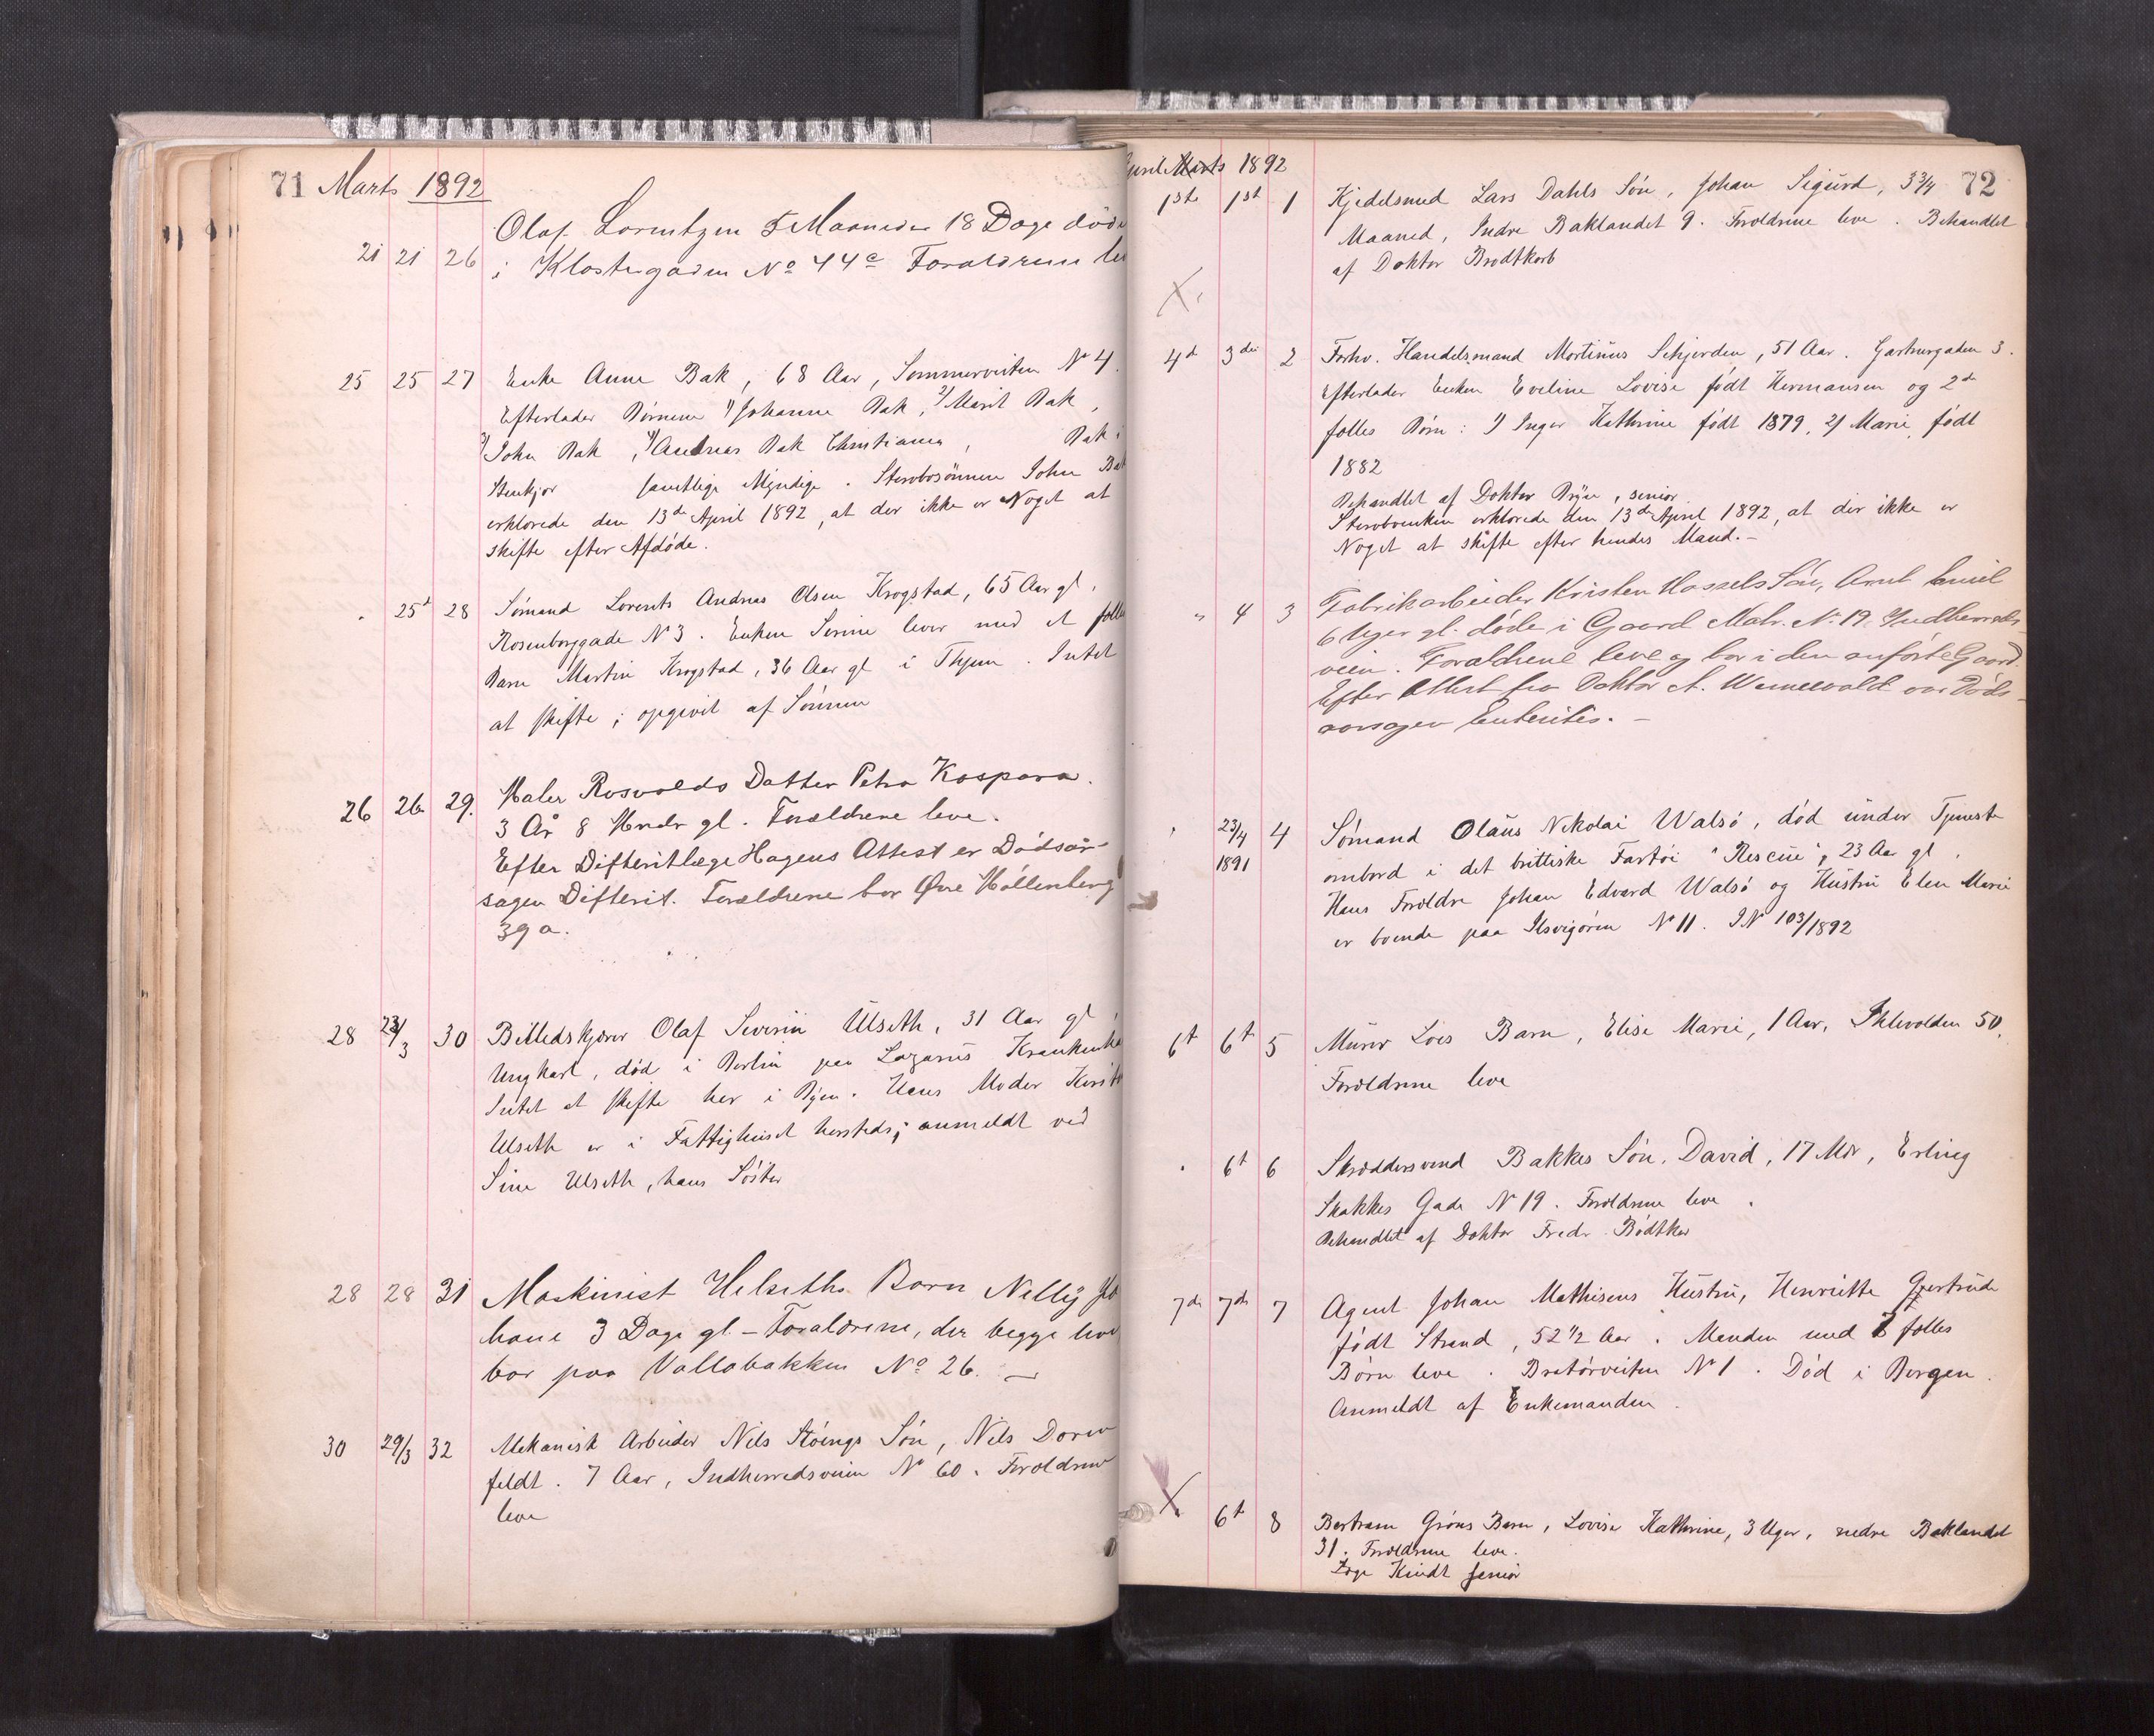 71 Marts 1892
Olaf Lorentzen 5 Maaneder 18 Dage døde
21 21 26 i Klostergaden No 44c Forældrene
25 25 27 Enke Anne Bak, 68 Aar, Sommerveiten No 4.
Efterlader Børnene 1) Johanne Bak, 2) Marit Bak,
3) John Bak, 4) Andreas Bak Christiania, Bak i
Stenkjær samtlige Myndige. Stervbosønnen John Bak
erklærede den 13de April 1892, at der ikke er Noget at
skifte efter Afdøde.
" 25t 28 Sømand Lorents Andreas Olsen Krogstad, 65 Aar gl,
Rosenborggade No 3. Enken Serine lever med et fælles
Barn Martin Krogstad, 36 Aar gl i Thjem. Intet
at skifte; opgivet af Sønnen
26 26 29. Maler Rosvolds Datter Petra Kaspara.
3 År 8 Mndr gl. Forældrene leve.
Efter Difteritlæge Hagens Attest er Dødsår-
sagen Difterit. Forældrene bor Øvre Møllenberg
39 a.
28 23/3 30 Billedskjærer Olaf Severin Ulseth, 31 Aar gl,
Ungkarl, død i Berlin paa Lazarus Krankenha
Intet at skifte her i Byen. Hans Moder
Ulseth er i Fattighuset hersteds; anmeldt ved
Sine Ulseth, hans Søster
28 28 31 Maskinist Helseths Barn Nelly Jo
hane 3 Dage gl. – Forældrene, der begge leve
bor paa Vollabakken No 26. —
30 29/3 32 Mekanisk Arbeider Nils Støings Søn, Nils Dovre
feldt. 7 Aar, Indherredsveien No 60. Forældrene
leve
April Marts 1892
72
1ste 1st 1 Kjedelsmed Lars Dahls Søn, Johan Sigurd, 3 3/4
Maaned, Indre Baklandet 9. Forældrene leve. Behandlet
af Doktor Brodtkorb
X.
4d 3die 2 Forhv. Handelsmand Mortinus Schjerden, 51 Aar. Gartnergaden 3.
Efterlader Enken Eveline Lovise født Hermansen og 2de
fælles Børn: 1) Inger Kathrine født 1879, 2) Marie, født
1882
Behandlet af Doktor Bryn, senior
Stervboenken erklærede den 13de April 1892, at der ikke er
Noget at skifte efter hendes Mand. –
" 4 3 Fabrikarbeider Kristen Hassels Søn, Arnt Emil
6 Uger gl. døde i Gaard Matr. No. 19 Indherreds-
veien. Forældrene leve og bor i den anførte Gaard.
Efter Attest fra Doktor A. Wernewold var Døds-
aarsagen Enteritis. –
" 23/4 1891 4 Sømand Olaus Nikolai Walsø, død under Tjeneste
ombord i det brittiske Fartøi "Rescue", 23 Aar gl.
Hans Forældre Johan Edvard Walsø og Hustru Elen Marie
er boende paa Ilsvigøren No 11. JN 103/1892
6t 6t 5 Murer Loes Barn, Elise Marie, 1 Aar, Ihlevolden 50.
Forældrene leve
" 6t 6 Skræddersvend Bakkes Søn, David, 17 Mdr, Erling
Skakkes Gade No 19. Forældrene leve.
Behandlet af Doktor Fredr. Bødtker
7de 7de 7 Agent Johan Mathisens Hustru, Henriette Gjertrude
født Strand, 52 1/2 Aar. Manden med fælles
Børn leve. Bratørveiten No 1. Død i Bergen.
Anmeldt af Enkemanden.
X. 6t 8 Bertram Grøns Barn, Lovise Kathrine, 3 Uger, nedre Baklandet
31. Forældrene leve.
Læge Kindt senior